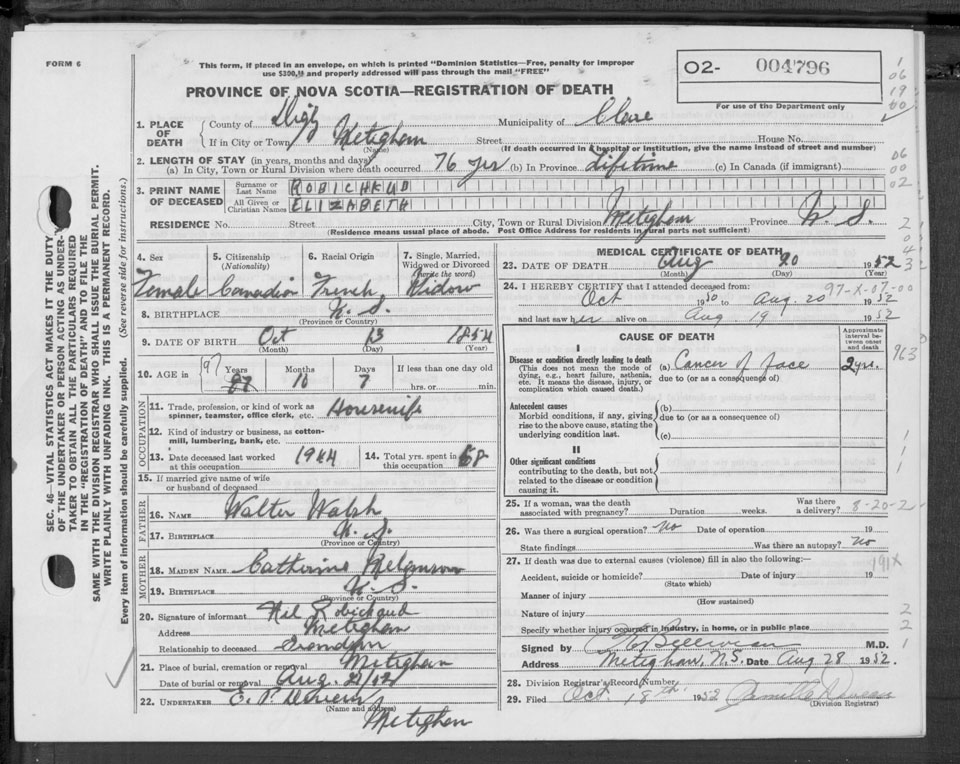 FORM 6
This form, if placed in an envelope, on which is printed "Dominion Statistics—Free, penalty for improper
use $300," and properly addressed will pass through the mail "FREE"
PROVINCE OF NOVA SCOTIA—REGISTRATION OF DEATH
02- 004796
For use of the Department only
1. PLACE OF DEATH
County of Digby Municipality of Clare
If in City or Town Meteghan Street House No.
(Name) (If death occurred in a hospital or institution, give the name instead of street and number)
2. LENGTH OF STAY (in years, months and days)
(a) In City, Town or Rural Division where death occurred 76 yrs (b) In Province lifetime (c) In Canada (if immigrant)
3. PRINT NAME OF DECEASED
Surname or Last Name ROBICHAUD
All Given or Christian Names ELIZABETH
RESIDENCE No. Street City, Town or Rural Division Meteghan Province N. S.
(Residence means usual place of abode. Post Office Address for residents in rural parts not sufficient)
4. Sex Female
5. Citizenship (Nationality) Canadian
6. Racial Origin French
7. Single, Married, Widowed or Divorced (write the word) Widow
8. BIRTHPLACE N. S.
(Province or Country)
9. DATE OF BIRTH Oct 13 1854
(Month) (Day) (Year)
10. AGE in 97 Years 10 Months 7 Days If less than one day old
hrs. or min.
OCCUPATION
11. Trade, profession, or kind of work as spinner, teamster, office clerk, etc. Housewife
12. Kind of industry or business, as cotton-mill, lumbering, bank, etc.
13. Date deceased last worked at this occupation 1944
14. Total yrs. spent in this occupation 68
15. If married give name of wife or husband of deceased
FATHER
16. NAME Walter Walsh
17. BIRTHPLACE N. S.
(Province or Country)
MOTHER
18. MAIDEN NAME Catherine
19. BIRTHPLACE N. S.
(Province or Country)
20. Signature of informant Robichaud
Address Meteghan
Relationship to deceased Grandson
21. Place of burial, cremation or removal Meteghan
Date of burial or removal Aug. 21/52
22. UNDERTAKER
(Name and address)
Meteghan
MEDICAL CERTIFICATE OF DEATH
23. DATE OF DEATH Aug 20 1952
(Month) (Day) (Year)
24. I HEREBY CERTIFY that I attended deceased from: 97-X-07-00
Oct 1950 to Aug. 20 1952
and last saw her alive on Aug. 19 1952
CAUSE OF DEATH
Approximate interval between onset and death
I
Disease or condition directly leading to death
(This does not mean the mode of dying, e.g., heart failure, asthenia, etc. It means the disease, injury, or complication which caused death.)
(a) Cancer of face 2 yrs.
due to (or as a consequence of)
Antecedent causes
Morbid conditions, if any, giving rise to the above cause, stating the underlying condition last.
(b)
due to (or as a consequence of)
(c)
II
Other significant conditions
contributing to the death, but not related to the disease or condition causing it.
25. If a woman, was the death associated with pregnancy? Duration weeks. Was there a delivery? 8-20-2
26. Was there a surgical operation? No Date of operation 19
State findings Was there an autopsy? No
27. If death was due to external causes (violence) fill in also the following:— 191X
Accident, suicide or homicide? Date of injury 19
(State which)
Manner of injury
(How sustained)
Nature of injury
Specify whether injury occurred in industry, in home, or in public place
Signed by M.D.
Address Meteghan, N.S. Date Aug 28 1952.
28. Division Registrar's Record Number
29. Filed Oct 18th 1952
(Division Registrar)
SEC. 46—VITAL STATISTICS ACT MAKES IT THE DUTY
OF THE UNDERTAKER OR PERSON ACTING AS UNDER-
TAKER TO OBTAIN ALL THE PARTICULARS REQUIRED
IN THE "REGISTRATION OF DEATH" AND TO FILE THE
SAME WITH THE DIVISION REGISTRAR WHO SHALL ISSUE THE BURIAL PERMIT.
WRITE PLAINLY WITH UNFADING INK. THIS IS A PERMANENT RECORD.
Every item of information should be carefully supplied. (See reverse side for instructions.)